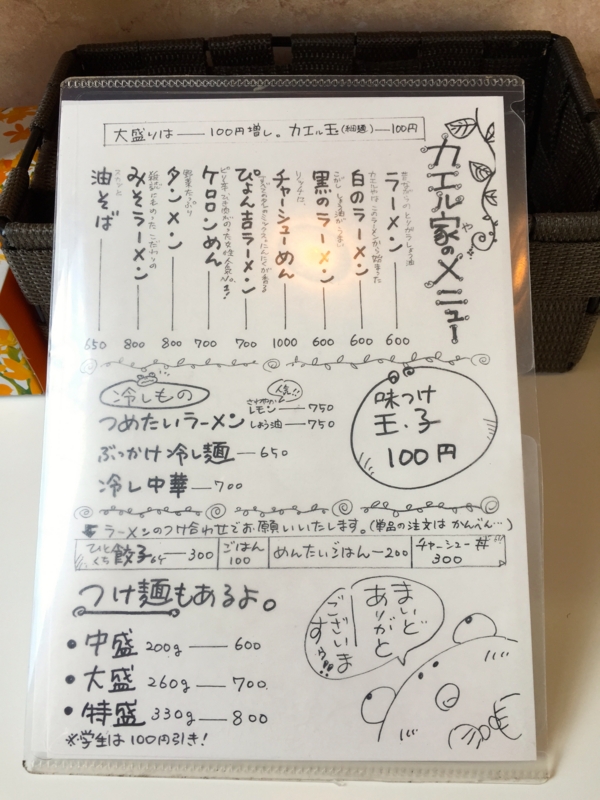 大盛りは――100円増し。カエル玉(替玉)――100円
カエル家のメニュー
や
ラーメン――600
白のラーメン――600
カエルやはこのラーメンから始まった
黒のラーメン――600
こがししょう油がうまい
チャーシューめん――1000
ぴょん吉ラーメン――700
ケロロンめん――700
タンメン――800
野菜たっぷり
みそラーメン――800
油そば――650
冷しもの
人気!!
つめたいラーメン
さわやか
レモン――750
しょう油――750
ぶっかけ冷し麺――650
冷し中華――700
味つけ
玉子
100円
ラーメンのつけ合わせでお願いいたします。(単品の注文はかんべん…)
ひとくち餃子6ケ――300
ごはん
100
めんたいごはん――200
チャーシュー丼
300
つけ麺もあるよ。
・中盛 200g――600
・大盛 260g――700
・特盛 330g――800
※学生は100円引き!
まいど
ありがと
ございま
す!!